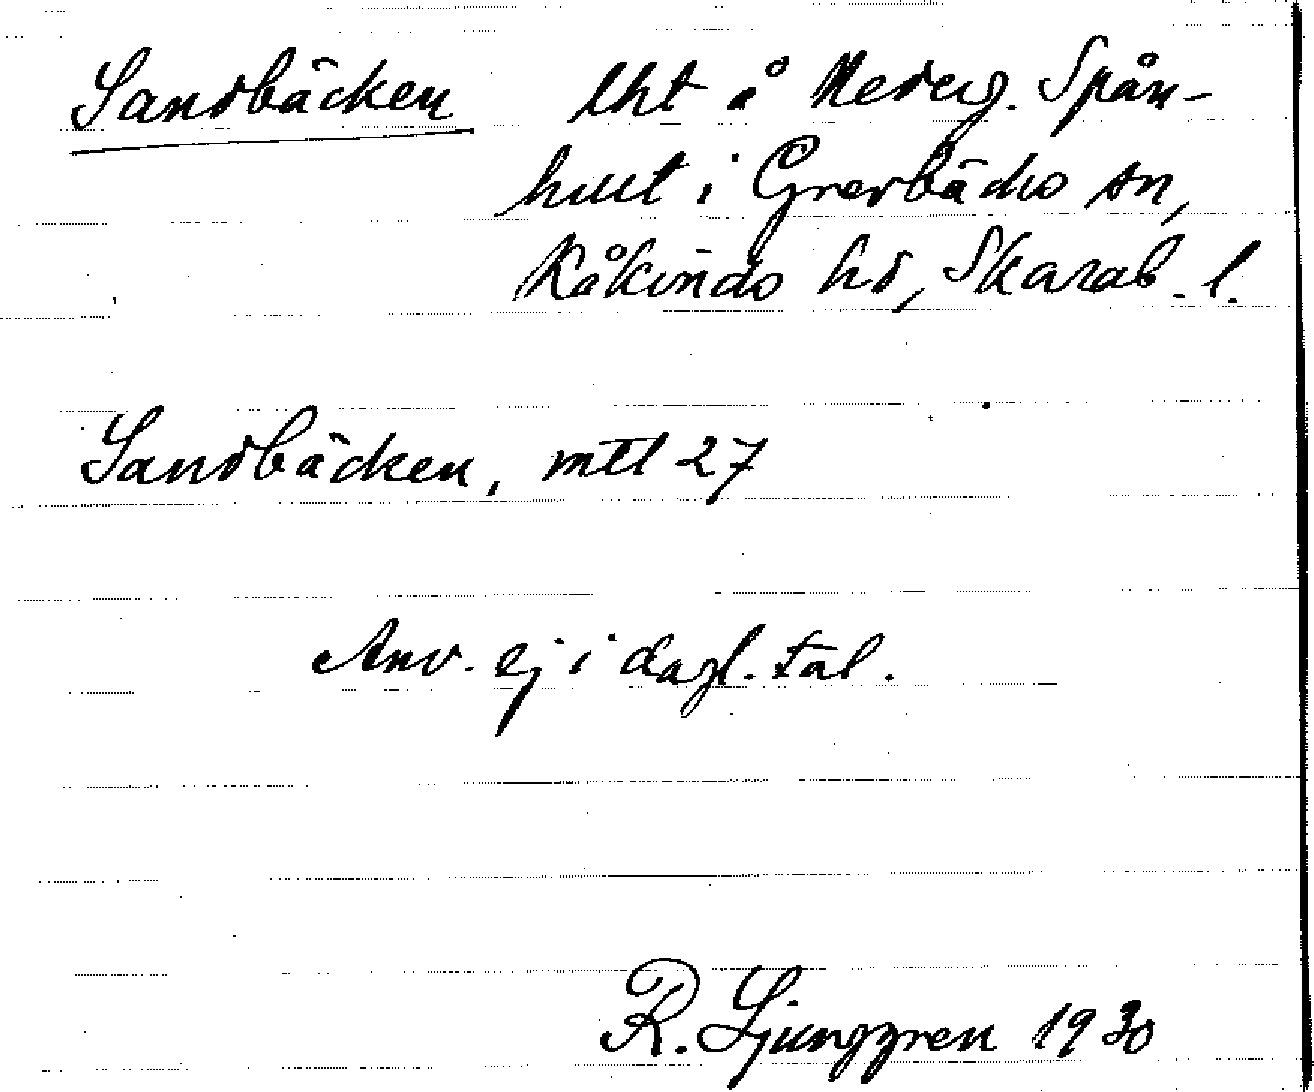 Sandbäcken lht å Nederg. Spån-
hult i Grevbäcks sn,
Kåkinds hd, Skarab. l.
Sandbäcken, mtl 27
Anv. ej i dagl. tal.
R. Ljunggren 1930